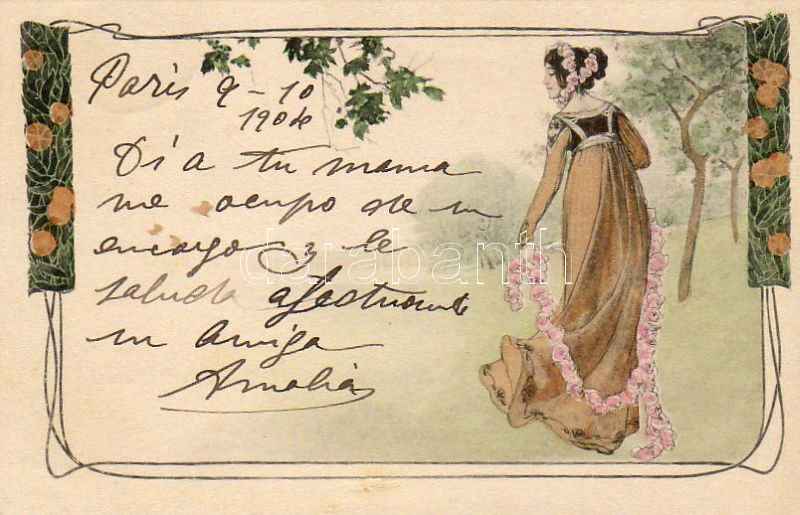 Paris 9-10
1904
Di a tu mama
me ocupo de su
encargo y le
saluda afectuosamte
su amiga
Amalia
darabanth